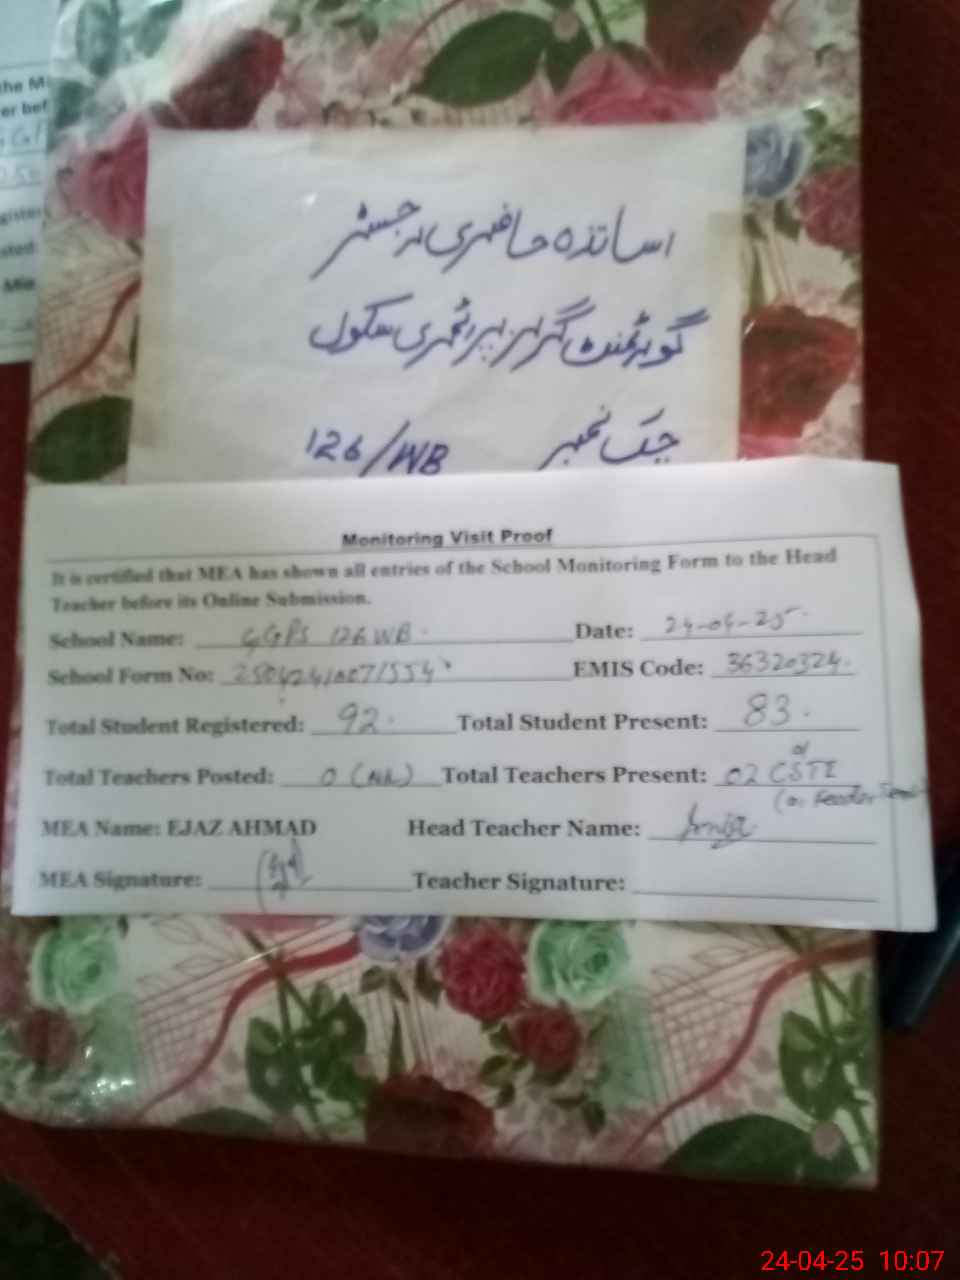 the M
er bef
اساتذہ حاضری رجسٹر
گورنمنٹ گرلز پرائمری سکول
چک نمبر 126/WB
Monitoring Visit Proof
It is certified that MEA has shown all entries of the School Monitoring Form to the Head
Teacher before its Online Submission.
School Name: GGPS 126 WB. Date: 24-04-25
School Form No: EMIS Code: 36320324.
Total Student Registered: 92. Total Student Present: 83.
Total Teachers Posted: 0 (NIL) Total Teachers Present: 02 CSTI
MEA Name: EJAZ AHMAD Head Teacher Name:
MEA Signature: Teacher Signature:
24-04-25 10:07